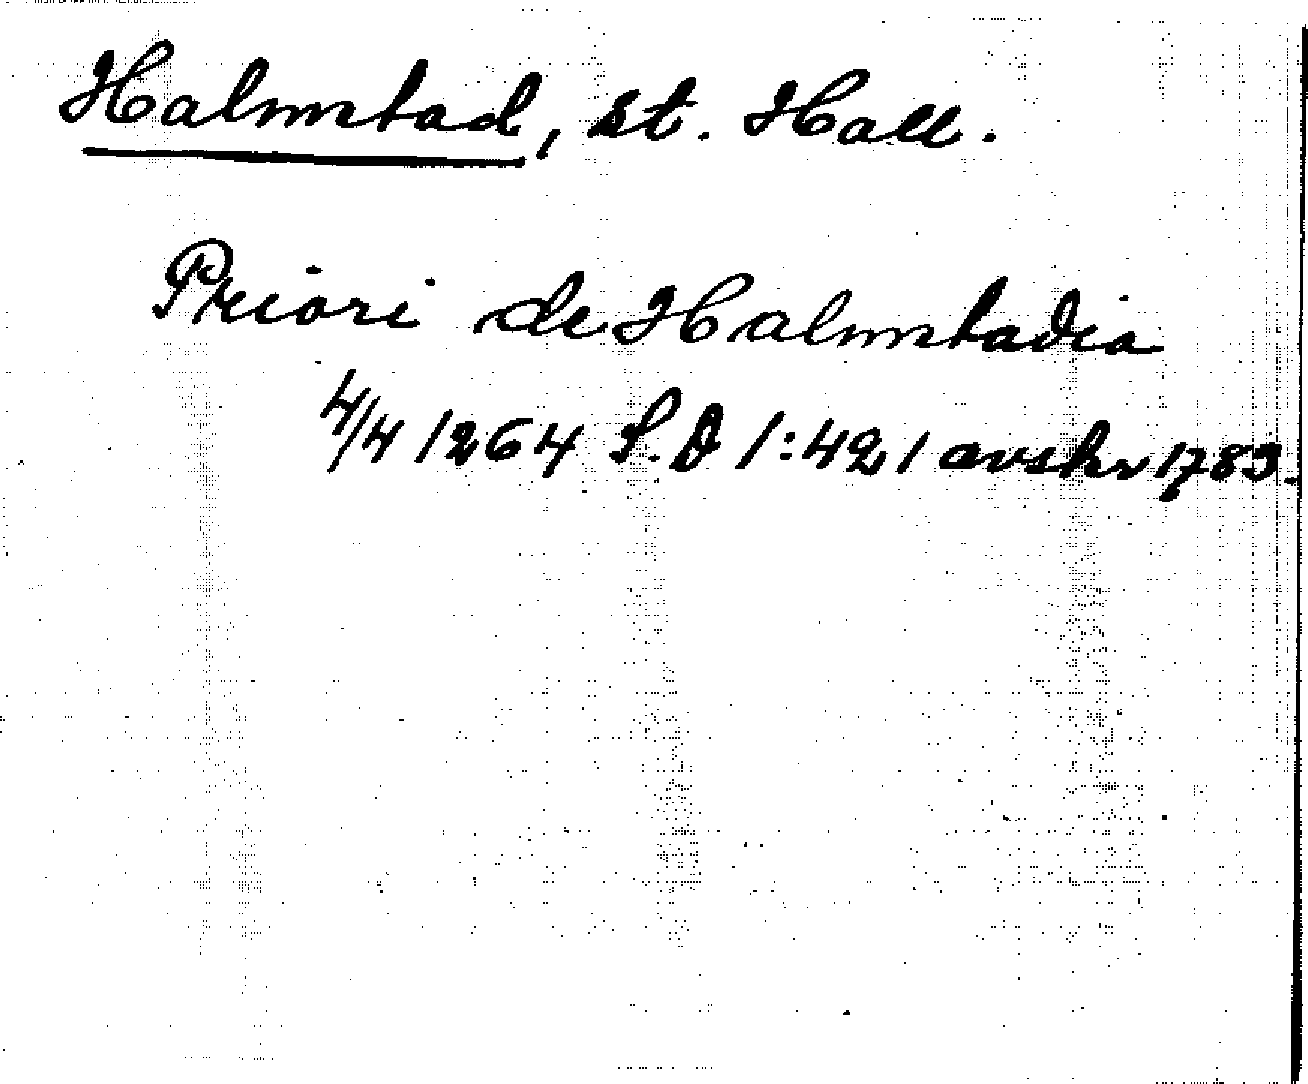 Halmstad, st. Hall.
Priori de Halmstadia
4/4 1264 S.D 1:421 avskr 1783.